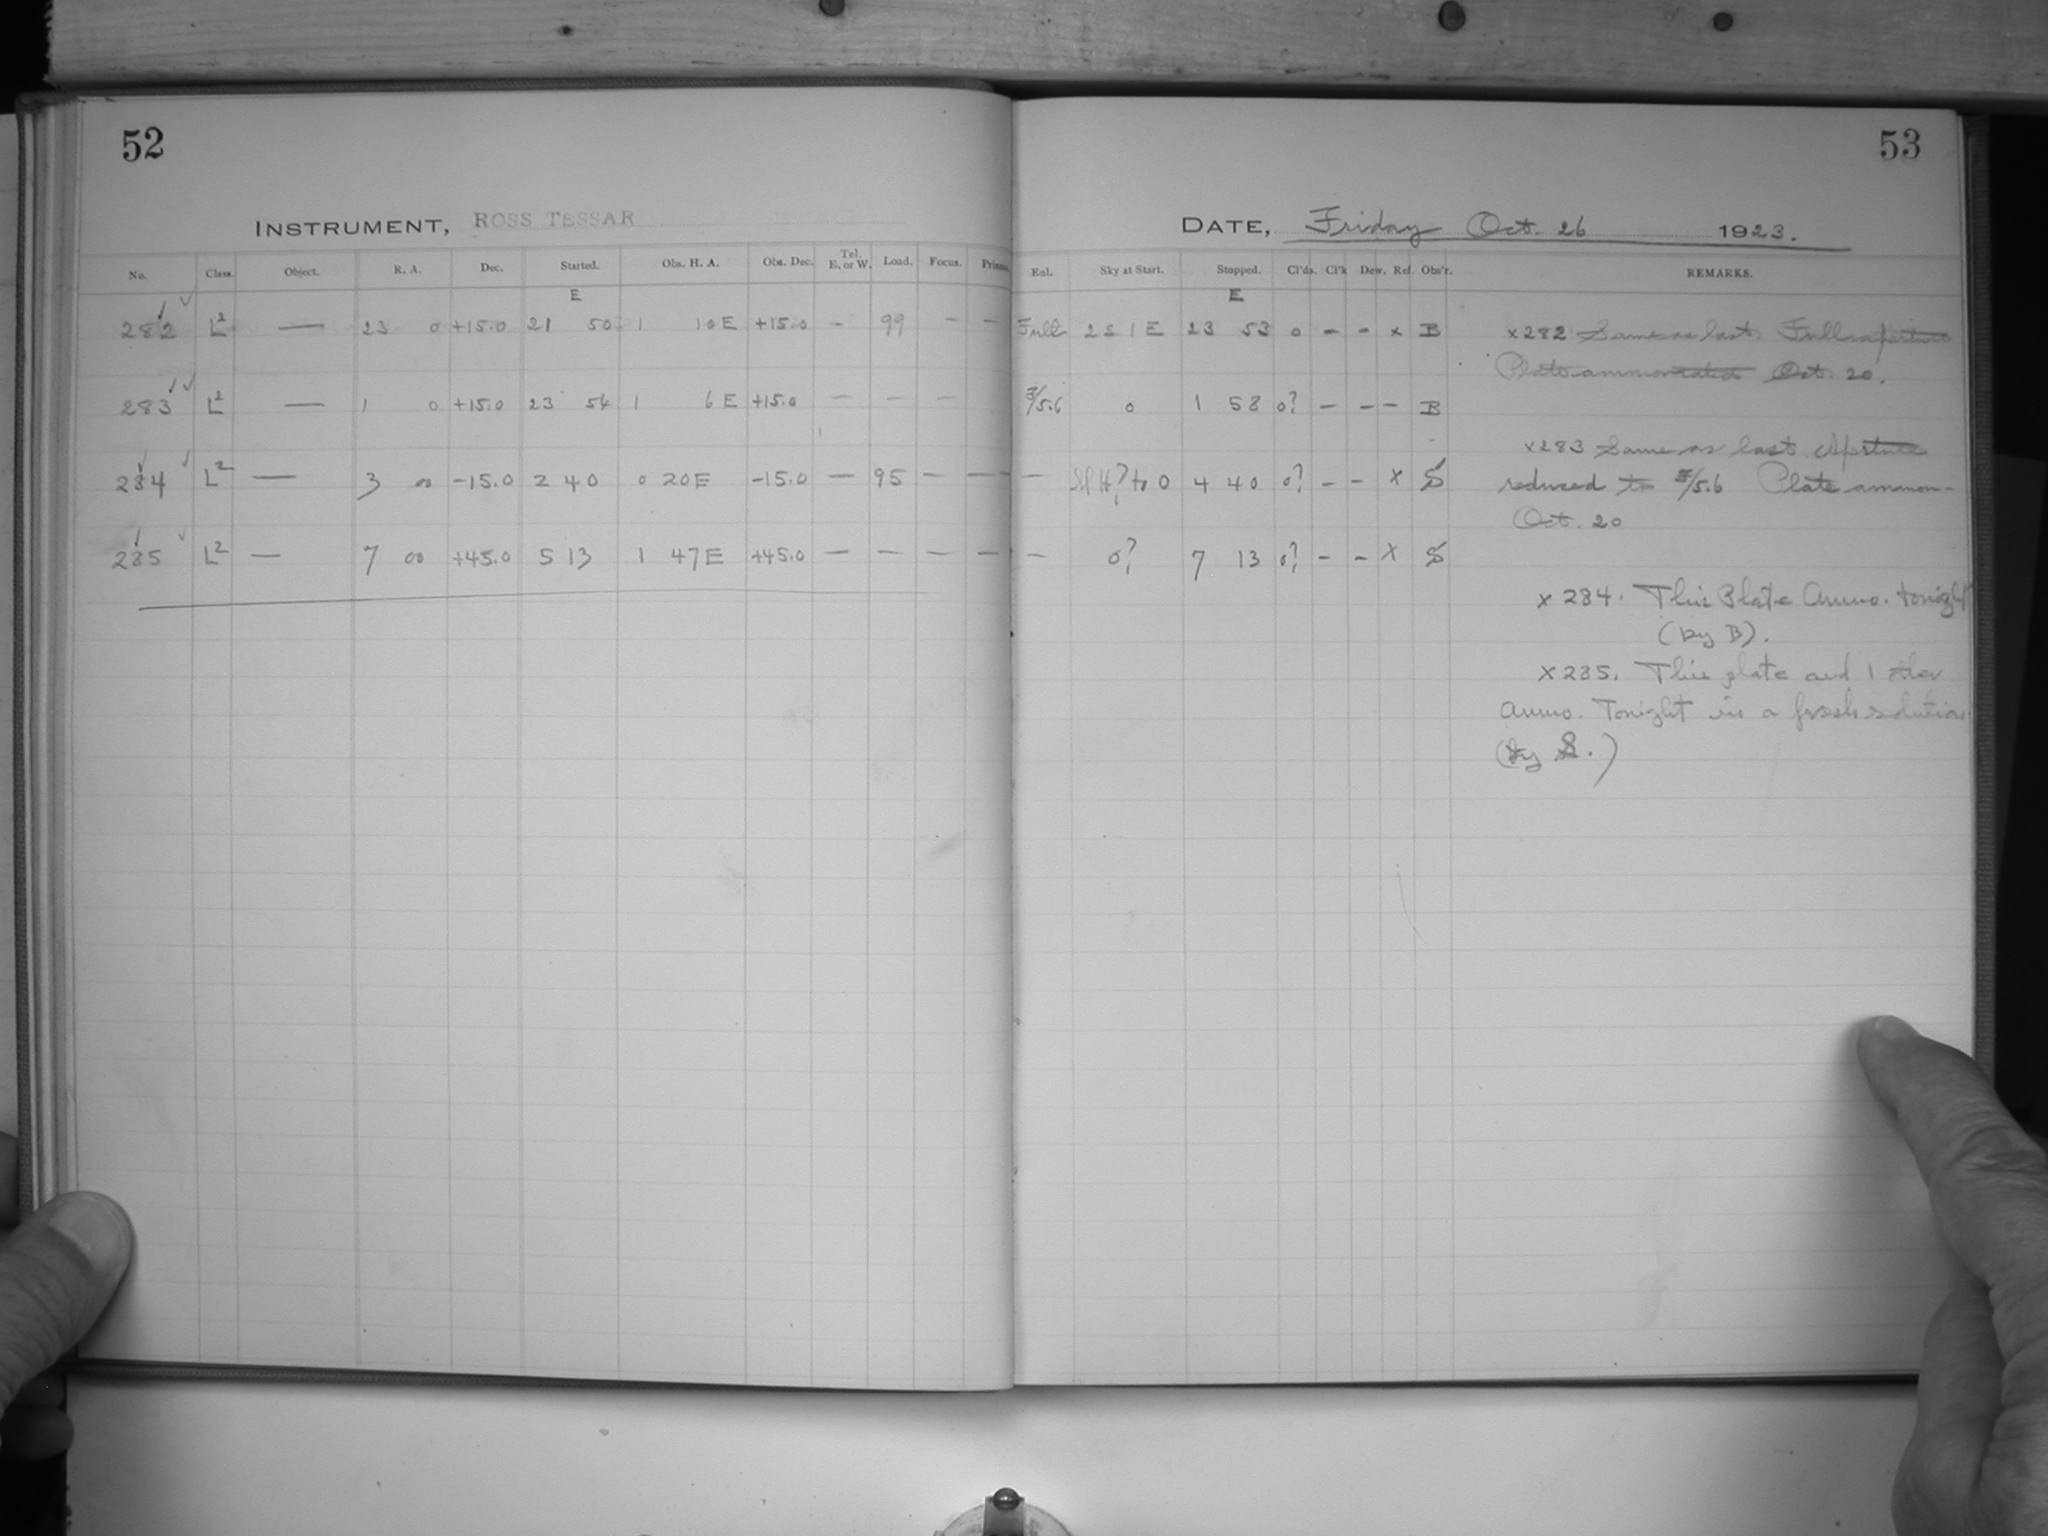 52
53
INSTRUMENT, ROSS TESSAR
DATE, Friday Oct. 26 1923.
No. Class. Object. R. A. Dec. Started. Obs. H. A. Obs. Dec. Tel. E. or W. Load. Focus. Prism Enl. Sky at Start. Stopped. Cl'ds. Cl'k Dew. Ref. Obs'r. REMARKS.
E E
282 L2 — 23 0 +15.0 21 50 1 10 E +15.0 – 99 – – Full 2 S 1 E 23 53 0 – – x B
283 L2 — 1 0 +15.0 23 54 1 6 E +15.0 – – – F/5.6 0 1 58 0? – – – B
284 L2 — 3 00 -15.0 2 40 0 20 E -15.0 — 95 – — – to 0 4 40 0? – – x S
285 L2 — 7 00 +45.0 5 13 1 47 E +45.0 — — – – – 0? 7 13 0? – – x S
x282 Same as last. Full aperture
Plate ammoniated Oct. 20.
x283 Same as last Aperture
reduced to F/5.6 Plate ammon-
Oct. 20
x 284. This Plate Ammo. tonight
(by B).
x 285. This plate and 1 other
Ammo. Tonight in a fresh solution
(by S.)